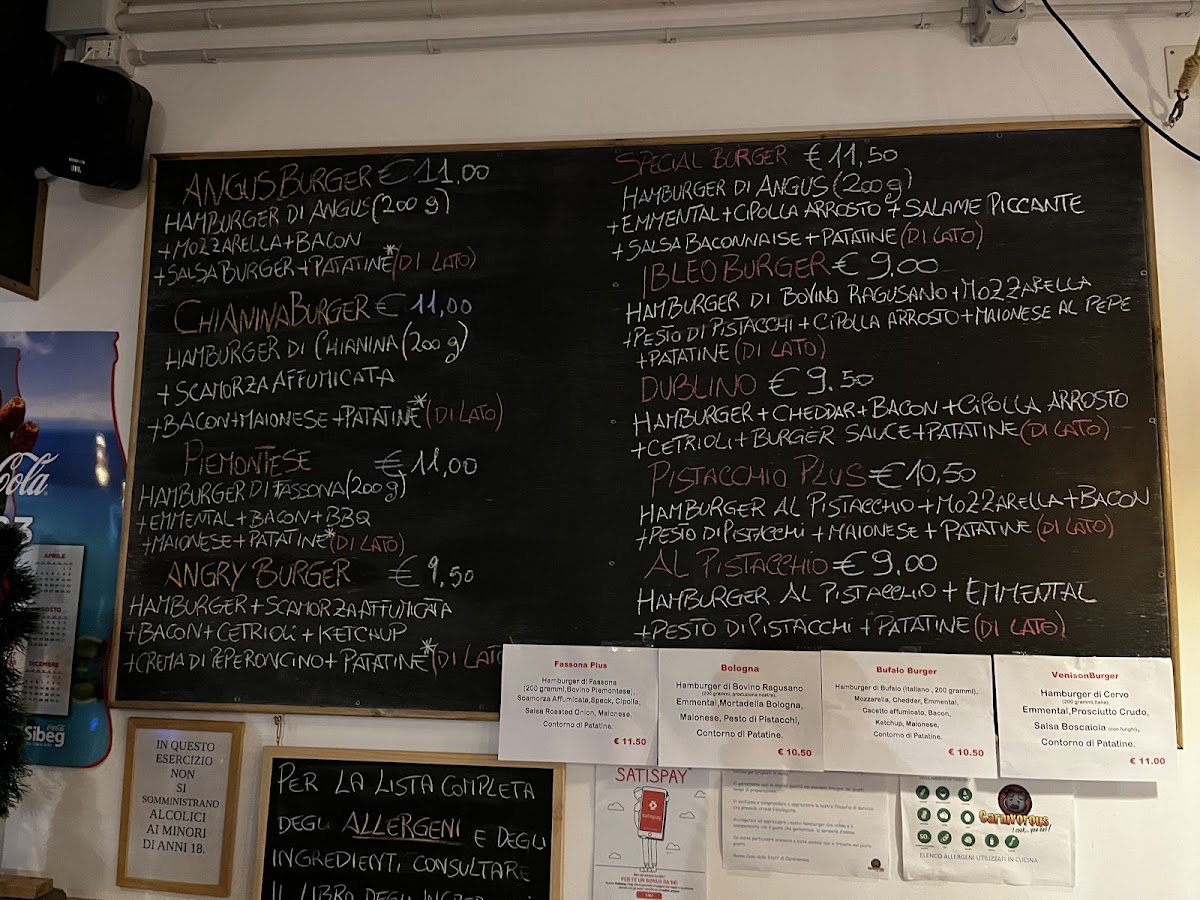 ANGUS BURGER € 11,00
HAMBURGER DI ANGUS (200 g)
+MOZZARELLA+BACON
+SALSA BURGER+PATATINE*(DI LATO)
CHIANINA BURGER € 11,00
HAMBURGER DI CHIANINA (200 g)
+SCAMORZA AFFUMICATA
+BACON+MAIONESE+PATATINE*(DI LATO)
PIEMONTESE € 11,00
HAMBURGER DI FASSONA (200 g)
+EMMENTAL+BACON+BBQ
+MAIONESE+PATATINE*(DI LATO)
ANGRY BURGER € 9,50
HAMBURGER+SCAMORZA AFFUMICATA
+BACON+CETRIOLI+KETCHUP
+CREMA DI PEPERONCINO+PATATINE*(DI LATO
SPECIAL BURGER € 11,50
HAMBURGER DI ANGUS (200 g)
+EMMENTAL+CIPOLLA ARROSTO+SALAME PICCANTE
+SALSA BACONNAISE+PATATINE (DI LATO)
IBLEO BURGER € 9.00
HAMBURGER DI BOVINO RAGUSANO+MOZZARELLA
+PESTO DI PISTACCHI+CIPOLLA ARROSTO+MAIONESE AL PEPE
+PATATINE (DI LATO)
DUBLINO € 9.50
HAMBURGER+CHEDDAR+BACON+CIPOLLA ARROSTO
+CETRIOLI+BURGER SAUCE+PATATINE (DI LATO)
PISTACCHIO PLUS € 10,50
HAMBURGER AL PISTACCHIO+MOZZARELLA+BACON
+PESTO DI PISTACCHI+MAIONESE+PATATINE (DI LATO)
AL PISTACCHIO € 9,00
HAMBURGER AL PISTACCHIO+EMMENTAL
+PESTO DI PISTACCHI+PATATINE (DI LATO)
Fassona Plus
Hamburger di Fassona
(200 grammi,Bovino Piemontese),
Scamorza Affumicata,Speck, Cipolla,
Salsa Roasted Onion, Maionese,
Contorno di Patatine.
€ 11.50
Bologna
Hamburger di Bovino Ragusano
(200 grammi, produzione nostra),
Emmental,Mortadella Bologna,
Maionese, Pesto di Pistacchi,
Contorno di Patatine.
€ 10.50
Bufalo Burger
Hamburger di Bufalo (Italiano , 200 grammi),
Mozzarella, Cheddar, Emmental,
Cacetto affumicato, Bacon,
Ketchup, Maionese,
Contorno di Patatine.
€ 10.50
VenisonBurger
Hamburger di Cervo
(200 grammi,Italia),
Emmental,Prosciutto Crudo,
Salsa Boscaiola (con funghi),
Contorno di Patatine.
€ 11.00
Cola
APRILE
DICEMBRE
Sibeg
IN QUESTO
ESERCIZIO
NON
SI
SOMMINISTRANO
ALCOLICI
AI MINORI
DI ANNI 18.
PER LA LISTA COMPLETA
DEGLI ALLERGENI E DEGLI
INGREDIENTI, CONSULTARE
IL LIBRO DEGLI
SATISPAY
satispay
Carnivorous
I cook... you eat!
ELENCO ALLERGENI UTILIZZATI IN CUCINA